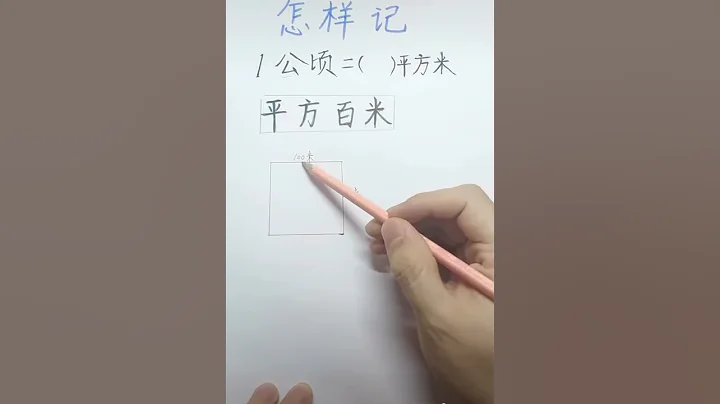 怎样记
1公顷=( )平方米
平方百米
100米